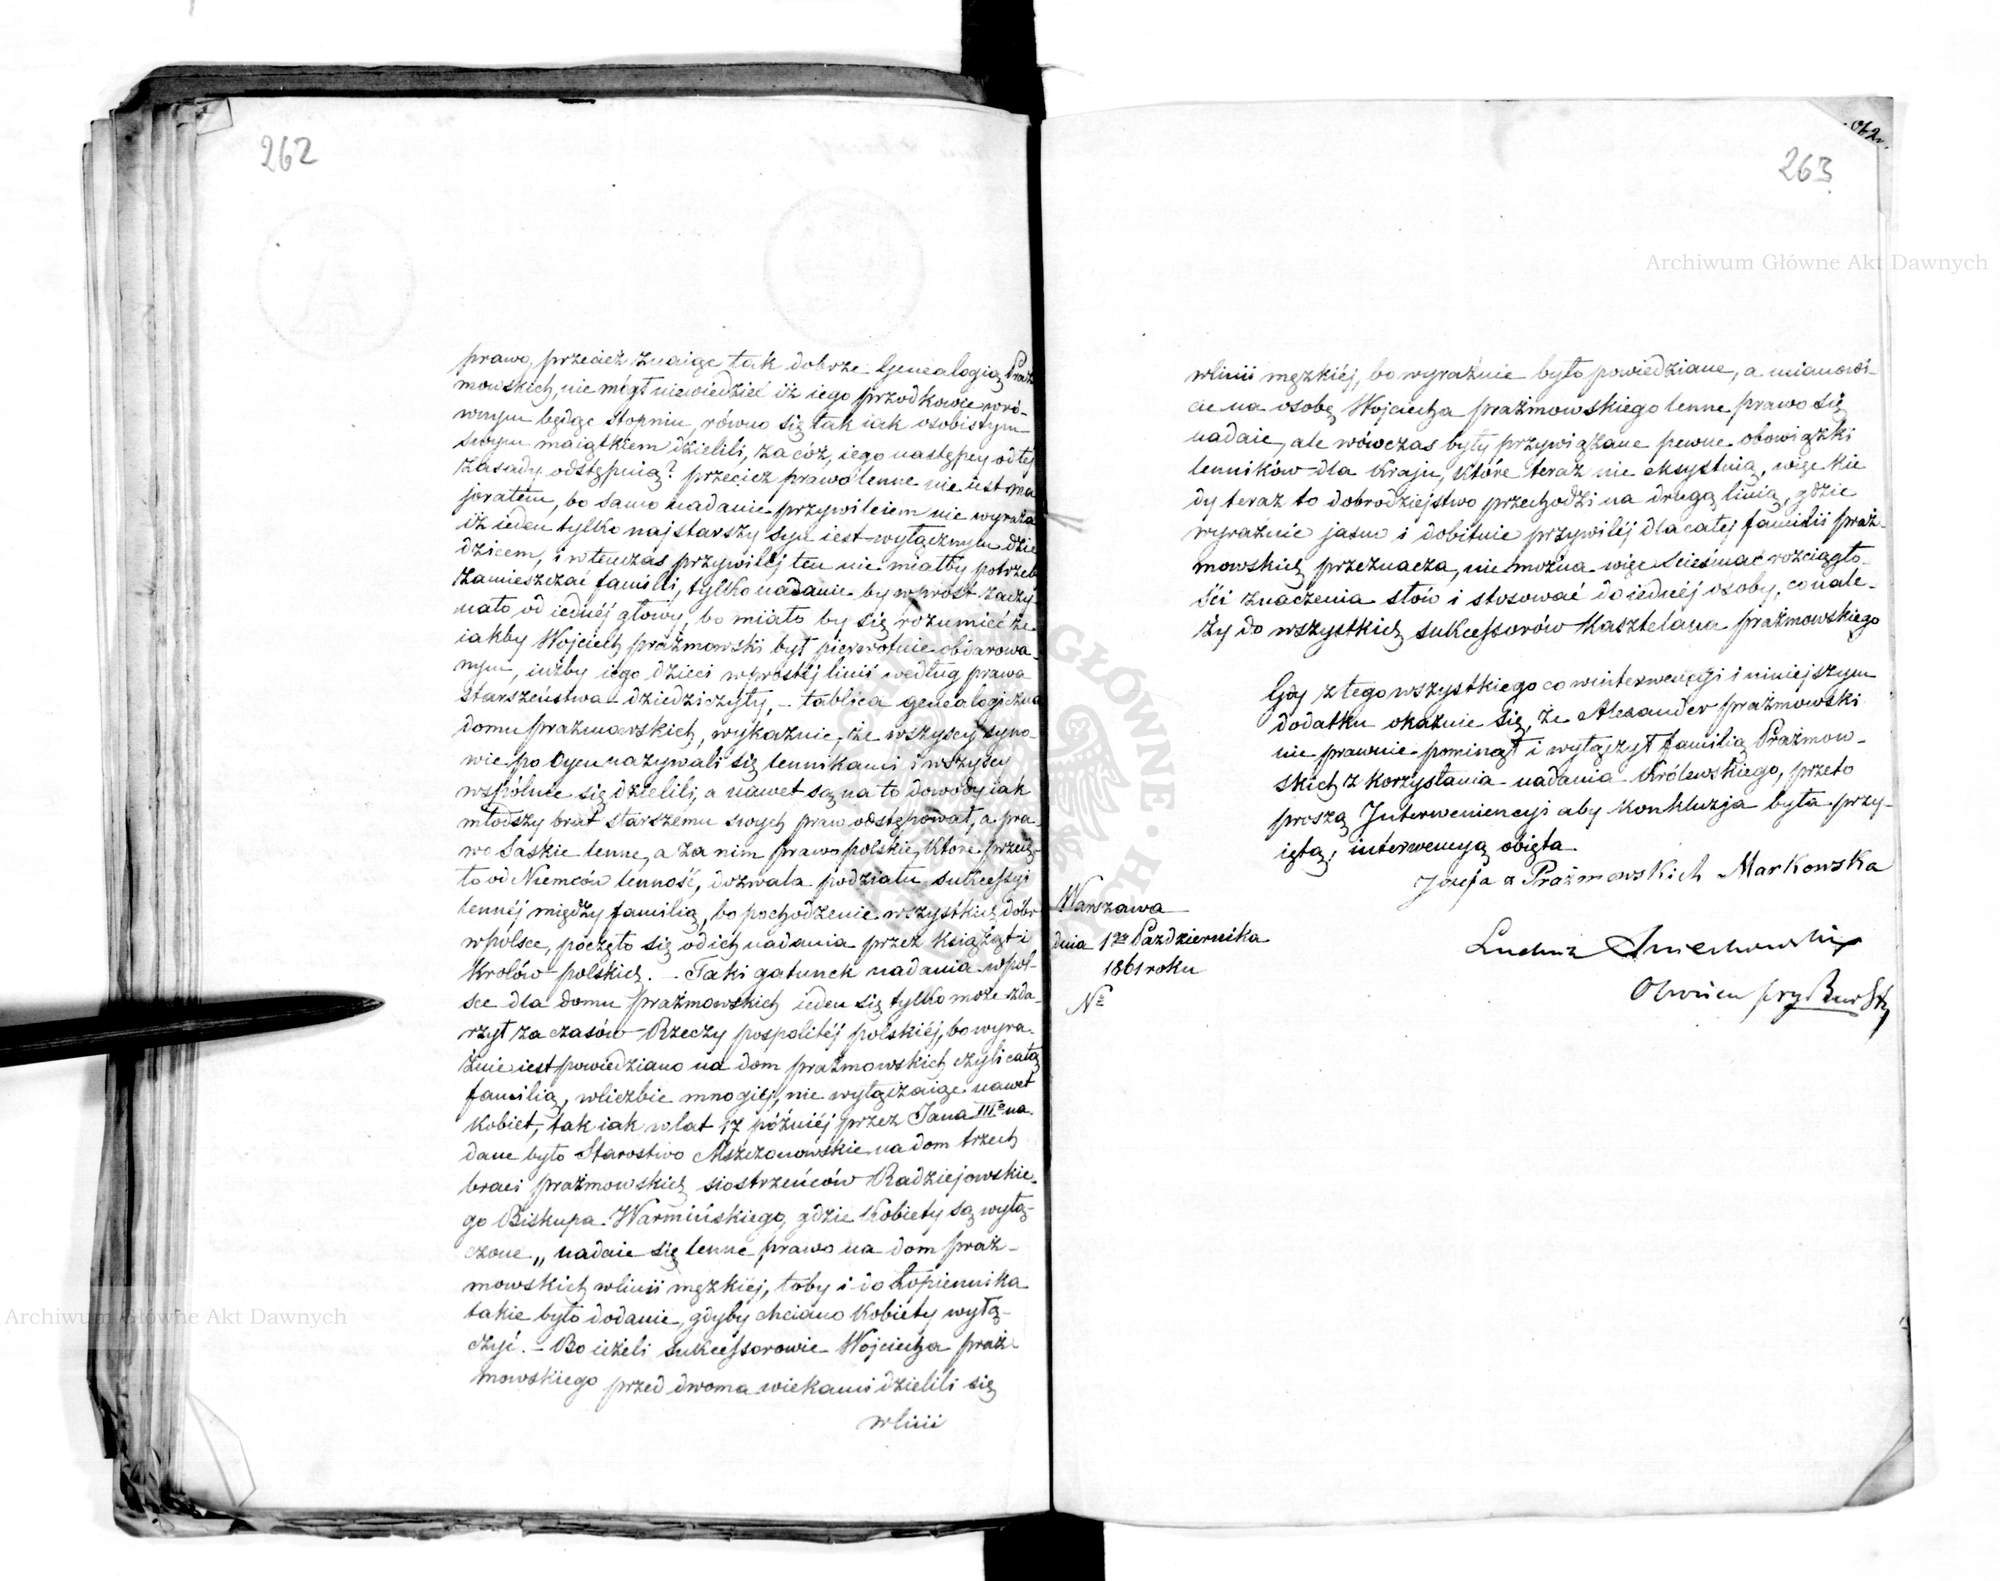 262
prawo, przecież znaiąc tak dobrze Genealogią Praż
mowskich, nie mógł niewiedzieć iż iego przodkowie w ró-
wnym będąc stopniu, równo się tak iak osobistym
swym maiątkiem dzielili, za cóż, iego następcy od tej
zasady odstępuią? przecież prawo lenne nie iest ma
joratem, bo samo nadanie przywileiem nie wyraża
iż ieden tylko najstarszy syn iest wyłącznym dzie
dzicem, i wtenczas przywilej ten nie miałby potrzeb
zamieszczać familii, tylko nadanie by wprost zaczy-
nało od iednéj głowy, bo miało by się rozumieć że
iakby Wojciech Prażmowski był pierwotnie obdarowa-
nym, iużby iego dzieci w prostéj linii według prawa
starszeństwa dziedziczyły, - tablica genealogiczna
domu Prażmowskich, wykazuie, że wszyscy syno-
wie po Oycu nazywali się lennikami i wszyscy
wspólnie się dzielili, a nawet są na to dowody iak
młodszy brat starszemu swych praw odstępował, a pra-
wo Saskie lenne, a za nim prawo polskie, które przeię-
ło od Niemców lenność, dozwala podziału sukcessyi
lennéj między familią, bo pochodzenie wszystkich dóbr
w Polsce, poczęło się od ich nadania przez Książąt i
Królów polskich. - Taki gatunek nadania w Pol-
sce dla domu Prażmowskich ieden się tylko może zda-
rzył za czasów Rzeczy pospolitéj polskiéj, bo wyra-
źnie iest powiedziano na dom Prażmowskich czyli całą
familią, w liczbie mnogiéj, nie wyłączaiąc nawet
kobiet, tak iak w lat 17 późniéj przez Jana IIIo na-
dane było Starostwo Mszczonowskie na dom trzech
braci Prażmowskich siostrzeńców Radziejowskie-
go Biskupa Warmińskiego, gdzie Kobiety są wyłą-
czone „ nadaie się lenne prawo na dom Praż-
mowskich w linii męzkiéj, toby i do Łopiennika
takie było dodanie, gdyby chciano Kobiety wyłą-
czyć. - Bo ieżeli sukcessorowie Wojciecha Praż-
mowskiego przed dwoma wiekami dzielili się
w linii
263
w linii męzkiéj, bo wyraźnie było powiedziane, a mianowi-
cie na osobę Wojciecha Prażmowskiego lenne prawo się
nadaie, ale wówczas były przywiązane pewne obowiązki
lenników dla Kraju, które teraz nie eksystuią, więc kie
dy teraz to dobrodziejstwo przechodzi na drugą linią, gdzie
wyraźnie jasno i dobitnie przywiléj dla całej familii Praż-
mowskich przeznacza, nie można więc ścieśniać rozciągło-
ści znaczenia słów i stosować do iednéj osoby, co nale-
ży do wszystkich sukcessorów Kasztelana Prażmowskiego
Gdy z tego wszystkiego co w interwencyi i niniejszym
dodatku okazuie się, że Alexander Prażmowski
nie prawnie pominął i wyłączył familią Prażmow-
skich z korzystania nadania Królewskiego, przeto
proszą Interweniencyi aby konkluzja była przy-
iętą, interwencyą obięta.
Józefa z Prażmowskich Markowska
Warszawa
dnia 12 Października
1861 roku
No
Archiwum Główne Akt Dawnych
Archiwum Główne Akt Dawnych